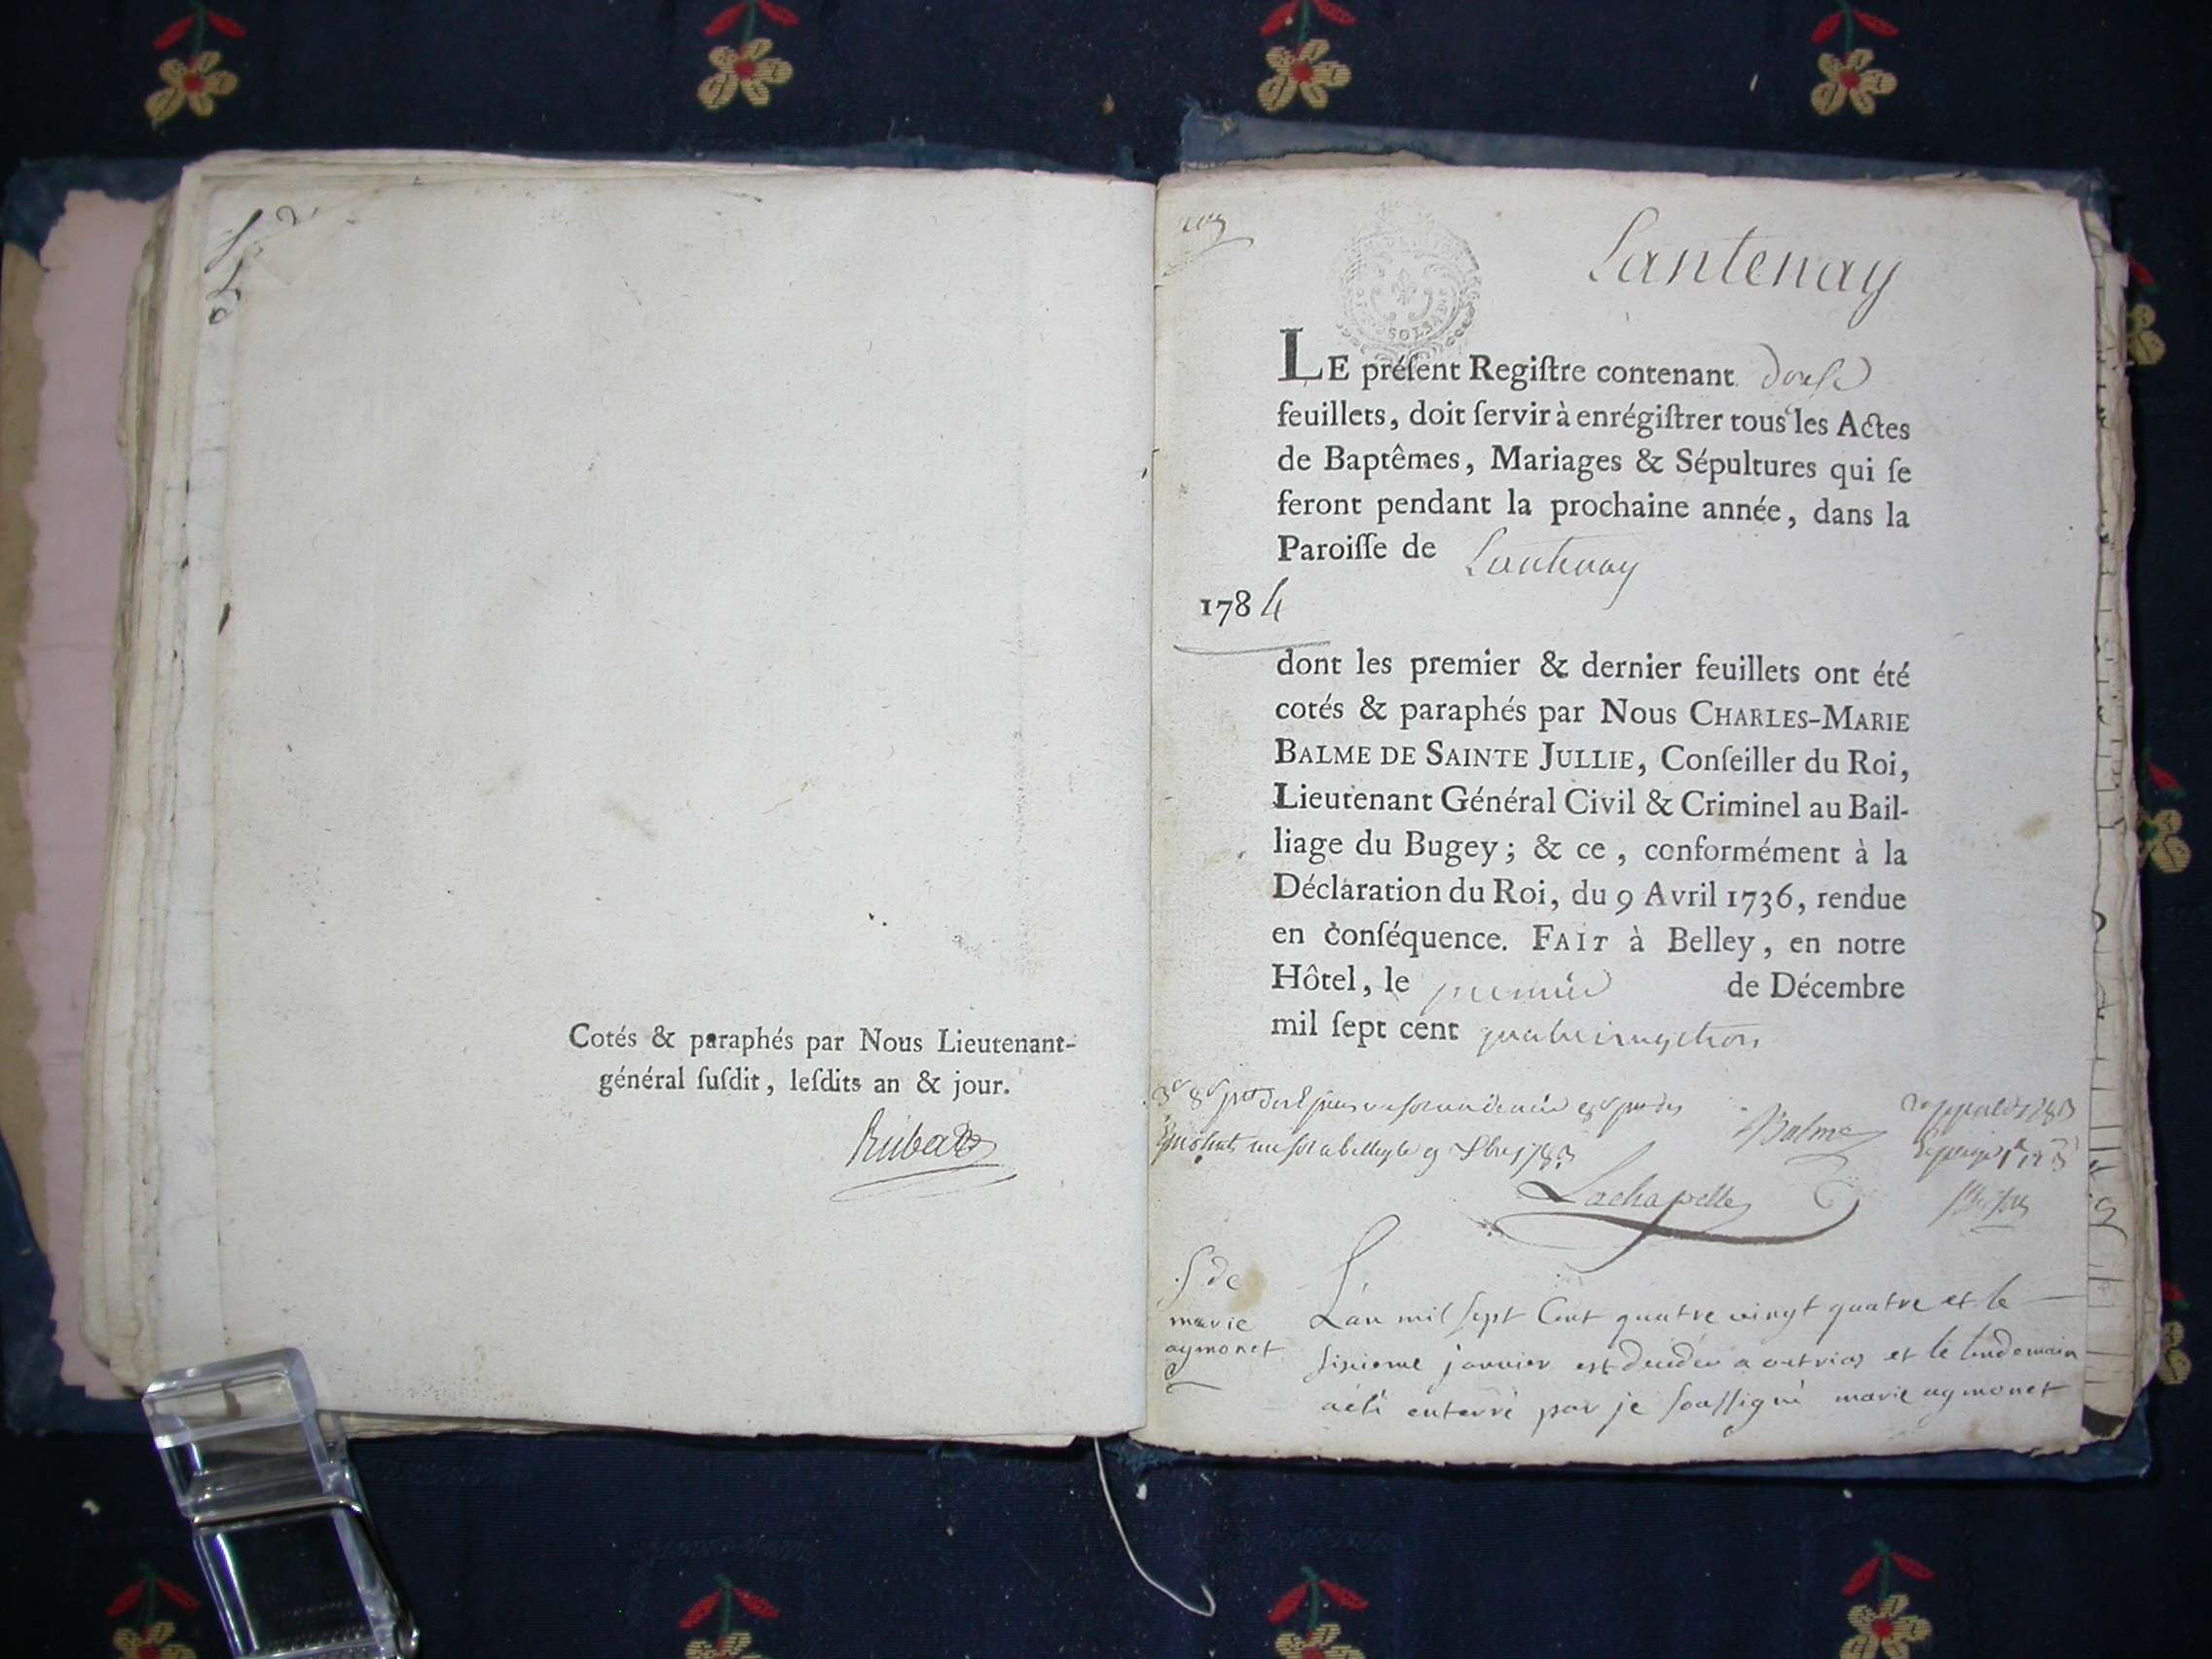 Cotés & paraphés par Nous Lieutenant-
général ſuſdit, leſdits an & jour.
Lantenay
LE préſent Regiſtre contenant douſe
feuillets, doit ſervir à enrégiſtrer tous les Actes
de Baptêmes, Mariages & Sépultures qui ſe
feront pendant la prochaine année, dans la
Paroiſſe de Lantenay
1784
dont les premier & dernier feuillets ont été
cotés & paraphés par Nous CHARLES-MARIE
BALME DE SAINTE JULLIE, Conſeiller du Roi,
Lieutenant Général Civil & Criminel au Bail-
liage du Bugey; & ce, conformément à la
Déclaration du Roi, du 9 Avril 1736, rendue
en conſéquence. FAIT à Belley, en notre
Hôtel, le premier de Décembre
mil ſept cent quatrevingttrois
Balme
Lachapelle
S de
marie
aymonet
L'an mil sept Cent quatre vingt quatre et le
sixieme janvier est decedée a outriaz et le lendemain
a été enterré par je soussigné marie aymonet